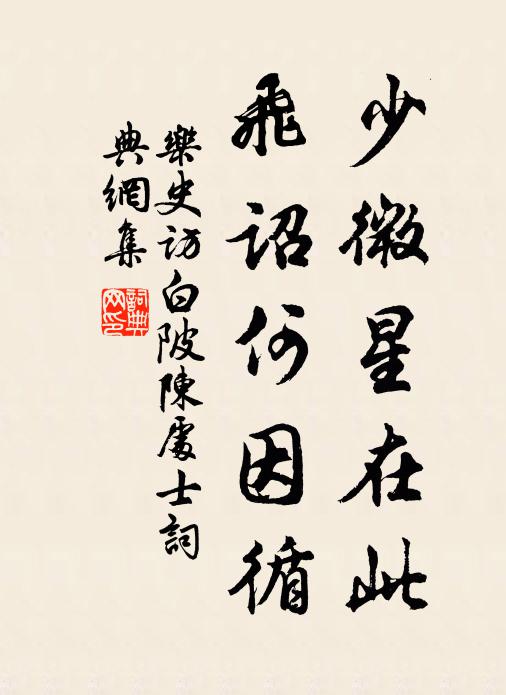 少微星在此
飛詔何因循
樂史訪白陂陳處士詞
典網集
詞典
网印